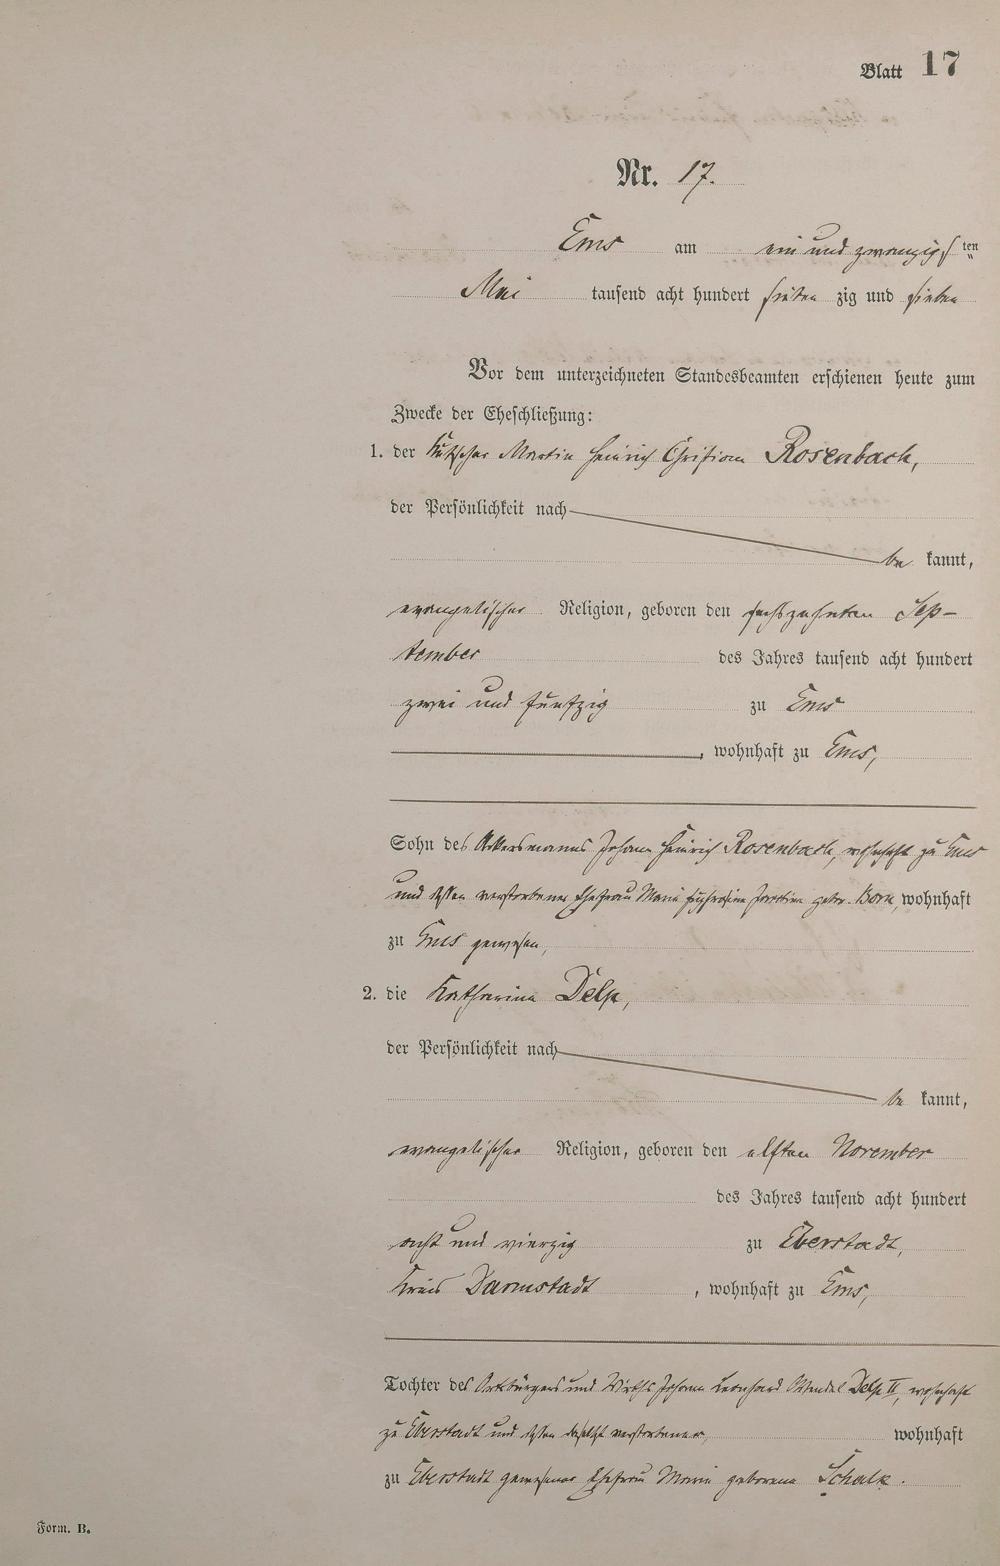 Blatt 17
Nr. 17.
Ems am ein und zwanzigsten
Mai tausend acht hundert sieben zig und sieben
Vor dem unterzeichneten Standesbeamten erschienen heute zum
Zwecke der Eheschließung:
1. der Kutscher Martin Heinrich Christian Rosenbach,
der Persönlichkeit nach
be kannt,
evangelischer Religion, geboren den sechszehnten Sep-
tember des Jahres tausend acht hundert
zwei und fünfzig zu Ems
, wohnhaft zu Ems,
Sohn des Ackersmanns Johann Heinrich Rosenbach, wohnhaft zu Ems
und dessen verstorbener Ehefrau Marie geb. Born, wohnhaft
zu Ems gewesen,
2. die Katharina Delp,
der Persönlichkeit nach
be kannt,
evangelischer Religion, geboren den elften November
des Jahres tausend acht hundert
acht und vierzig zu Eberstadt,
Kreis Darmstadt , wohnhaft zu Ems,
Tochter des Ortsbürgers und Wirths Johann Leonhard Wendel Delp II, wohnhaft
zu Eberstadt und dessen daselbst verstorbener, wohnhaft
zu Eberstadt gewesener Ehefrau Marie geborene Schalk.
Form. B.